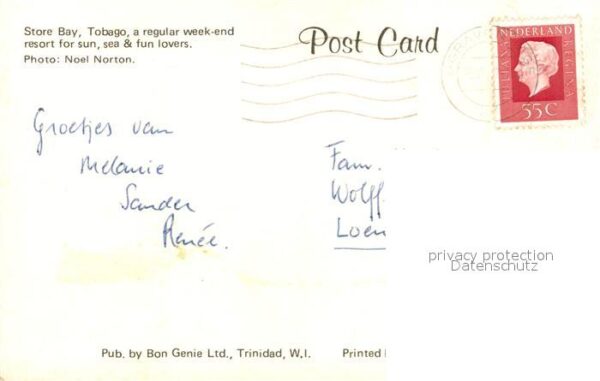 Store Bay, Tobago, a regular week-end
resort for sun, sea & fun lovers.
Photo: Noel Norton.
Post Card
JULIANA NEDERLAND REGINA
55C
Groetjes van
Melanie
Sander
Renée.
Fam.
Wolff
Loen
privacy protection
Datenschutz
Pub. by Bon Genie Ltd., Trinidad, W.I.
Printed